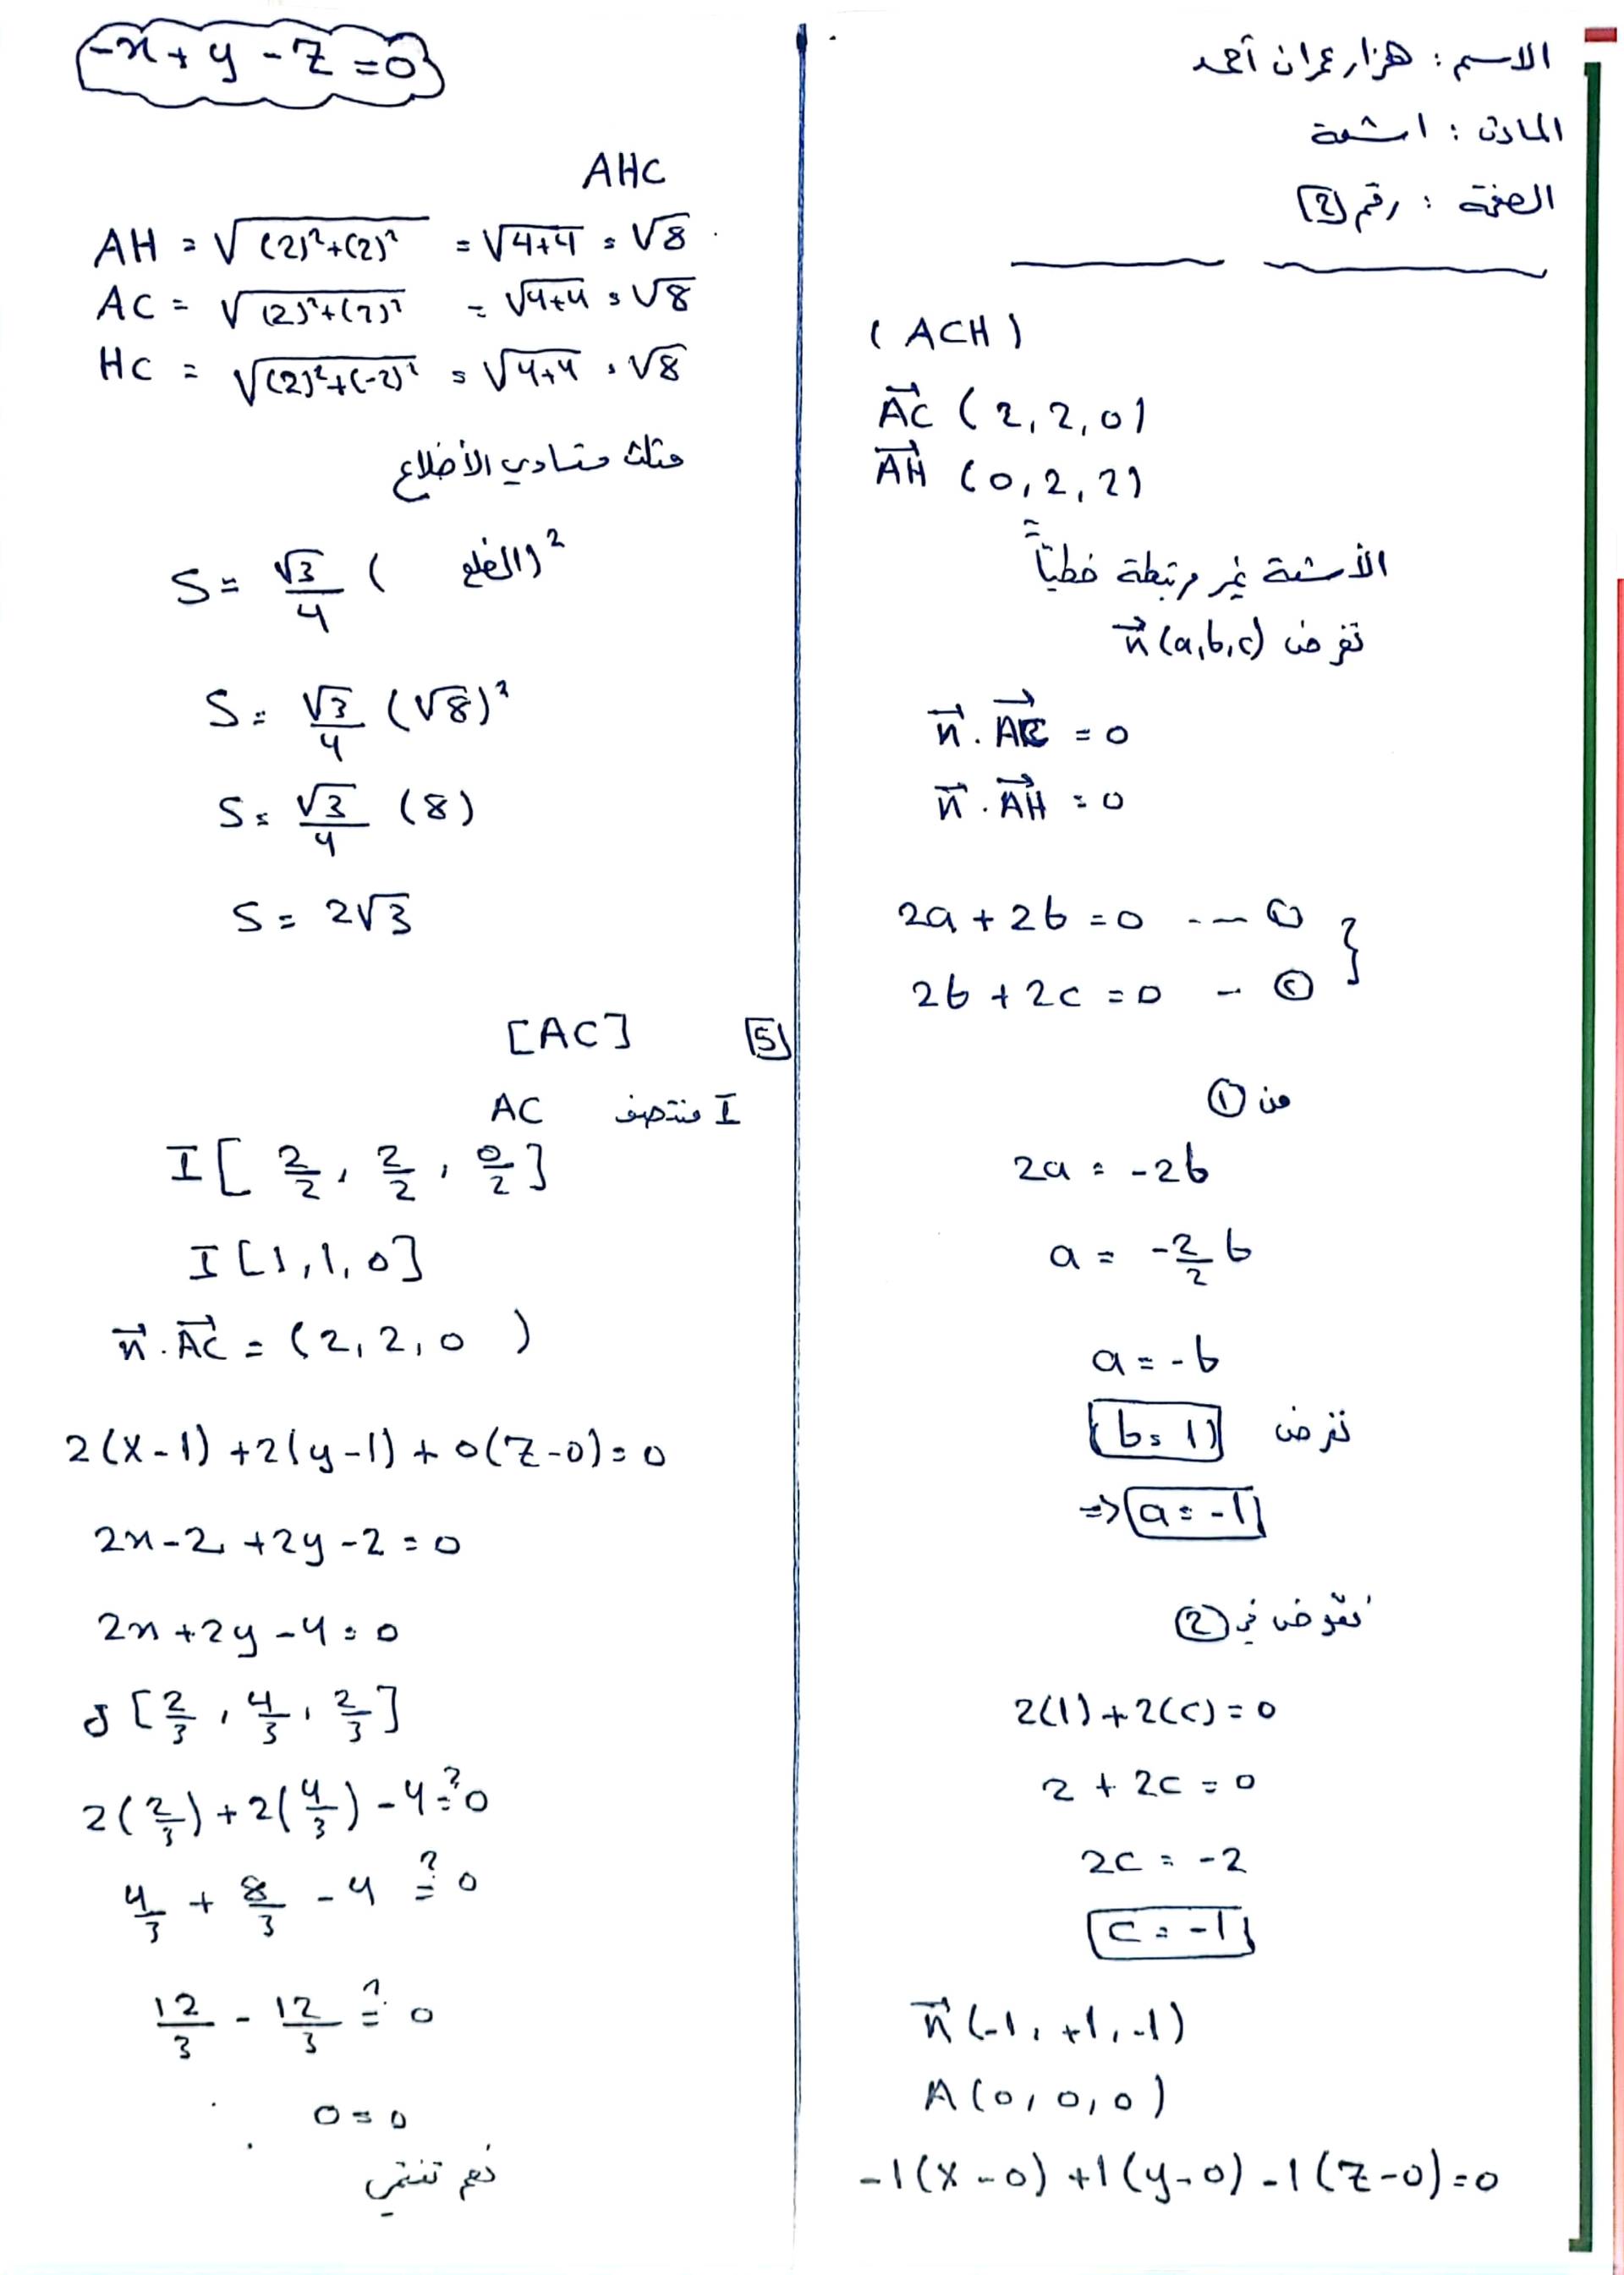 الاسم : هزار عمران أحمد
المادة : اشعة
الصفحة : رقم [2]
( ACH )
AC⃗ ( 2, 2, 0 )
AH⃗ ( 0, 2, 2 )
الأشعة غير مرتبطة خطياً
نفرض n⃗ (a, b, c)
n⃗ . AC⃗ = 0
n⃗ . AH⃗ = 0
2a + 2b = 0 --- ①
2b + 2c = 0 - ②
من ①
2a = -2b
a = -2/2 b
a = -b
نفرض b = 1
⇒ a = -1
نعوض في ②
2(1) + 2(c) = 0
2 + 2c = 0
2c = -2
c = -1
n⃗ (-1, +1, -1)
A (0, 0, 0)
-1(x-0) +1(y-0) -1(z-0) = 0
-x + y - z = 0
AHC
AH = √(2)²+(2)² = √4+4 = √8
AC = √(2)²+(2)² = √4+4 = √8
HC = √(2)²+(-2)² = √4+4 = √8
مثلث متساوي الأضلاع
S = √3/4 ( الضلع)²
S = √3/4 (√8)²
S = √3/4 (8)
S = 2√3
[5] [AC]
I منتصف AC
I [ 2/2 , 2/2 , 0/2 ]
I [1, 1, 0]
n⃗ . AC⃗ = (2, 2, 0 )
2(x-1) +2(y-1) + 0(z-0) = 0
2x - 2 + 2y - 2 = 0
2x + 2y - 4 = 0
J [ 2/3 , 4/3 , 2/3 ]
2(2/3) + 2(4/3) - 4 ≟ 0
4/3 + 8/3 - 4 ≟ 0
12/3 - 12/3 ≟ 0
0 = 0
نعم تنتمي